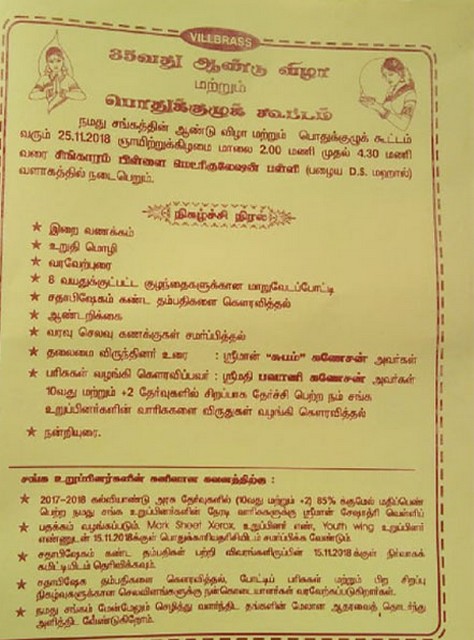 VILLBRASS
35வது ஆண்டு விழா
மற்றும்
பொதுக்குழுக் கூட்டம்
நமது சங்கத்தின் ஆண்டு விழா மற்றும் பொதுக்குழுக் கூட்டம்
வரும் 25.11.2018 ஞாயிற்றுக்கிழமை மாலை 2.00 மணி முதல் 4.30 மணி
வரை சிங்காரம் பிள்ளை மெட்ரிகுலேஷன் பள்ளி (பழைய D.S. மஹால்)
வளாகத்தில் நடைபெறும்.
நிகழ்ச்சி நிரல்
★ இறை வணக்கம்
★ உறுதி மொழி
★ வரவேற்புரை
★ 8 வயதுக்குட்பட்ட குழந்தைகளுக்கான மாறுவேடப்போட்டி
★ சதாபிஷேகம் கண்ட தம்பதிகளை கௌரவித்தல்
★ ஆண்டறிக்கை
★ வரவு செலவு கணக்குகள் சமர்ப்பித்தல்
★ தலைமை விருந்தினர் உரை : ஸ்ரீமான் "சுயம்" கணேசன் அவர்கள்
★ பரிசுகள் வழங்கி கௌரவிப்பவர் : ஸ்ரீமதி பவானி கணேசன் அவர்கள்
10வது மற்றும் +2 தேர்வுகளில் சிறப்பாக தேர்ச்சி பெற்ற நம் சங்க
உறுப்பினர்களின் வாரிசுகளை விருதுகள் வழங்கி கௌரவித்தல்
★ நன்றியுரை.
சங்க உறுப்பினர்களின் கனிவான கவனத்திற்கு :
★ 2017-2018 கல்வியாண்டு அரசு தேர்வுகளில் (10வது மற்றும் +2) 85% க்குமேல் மதிப்பெண்
பெற்ற நமது சங்க உறுப்பினர்களின் நேரடி வாரிசுகளுக்கு ஸ்ரீமான் சேஷாத்ரி வெள்ளிப்
★ பதக்கம் வழங்கப்படும். Mark Sheet Xerox, உறுப்பினர் எண், Youth wing உறுப்பினர்
எண்ணுடன் 15.11.2018க்குள் பொதுக்காரியதரிசியிடம் சமர்ப்பிக்க வேண்டும்.
★ சதாபிஷேகம் கண்ட தம்பதிகள் பற்றி விவரங்களிருப்பின் 15.11.2018க்குள் நிர்வாகக்
கமிட்டியிடம் தெரிவிக்கவும்.
★ சதாபிஷேக தம்பதிகளை கௌரவித்தல், போட்டிப் பரிசுகள் மற்றும் பிற சிறப்பு
நிகழ்வுகளுக்கான செலவினங்களுக்கு நன்கொடையாளர்கள் வரவேற்கப்படுகிறார்கள்.
★ நமது சங்கம் மேன்மேலும் செழித்து வளர்ந்திட தங்களின் மேலான ஆதரவைத் தொடர்ந்து
அளித்திட வேண்டுகிறோம்.